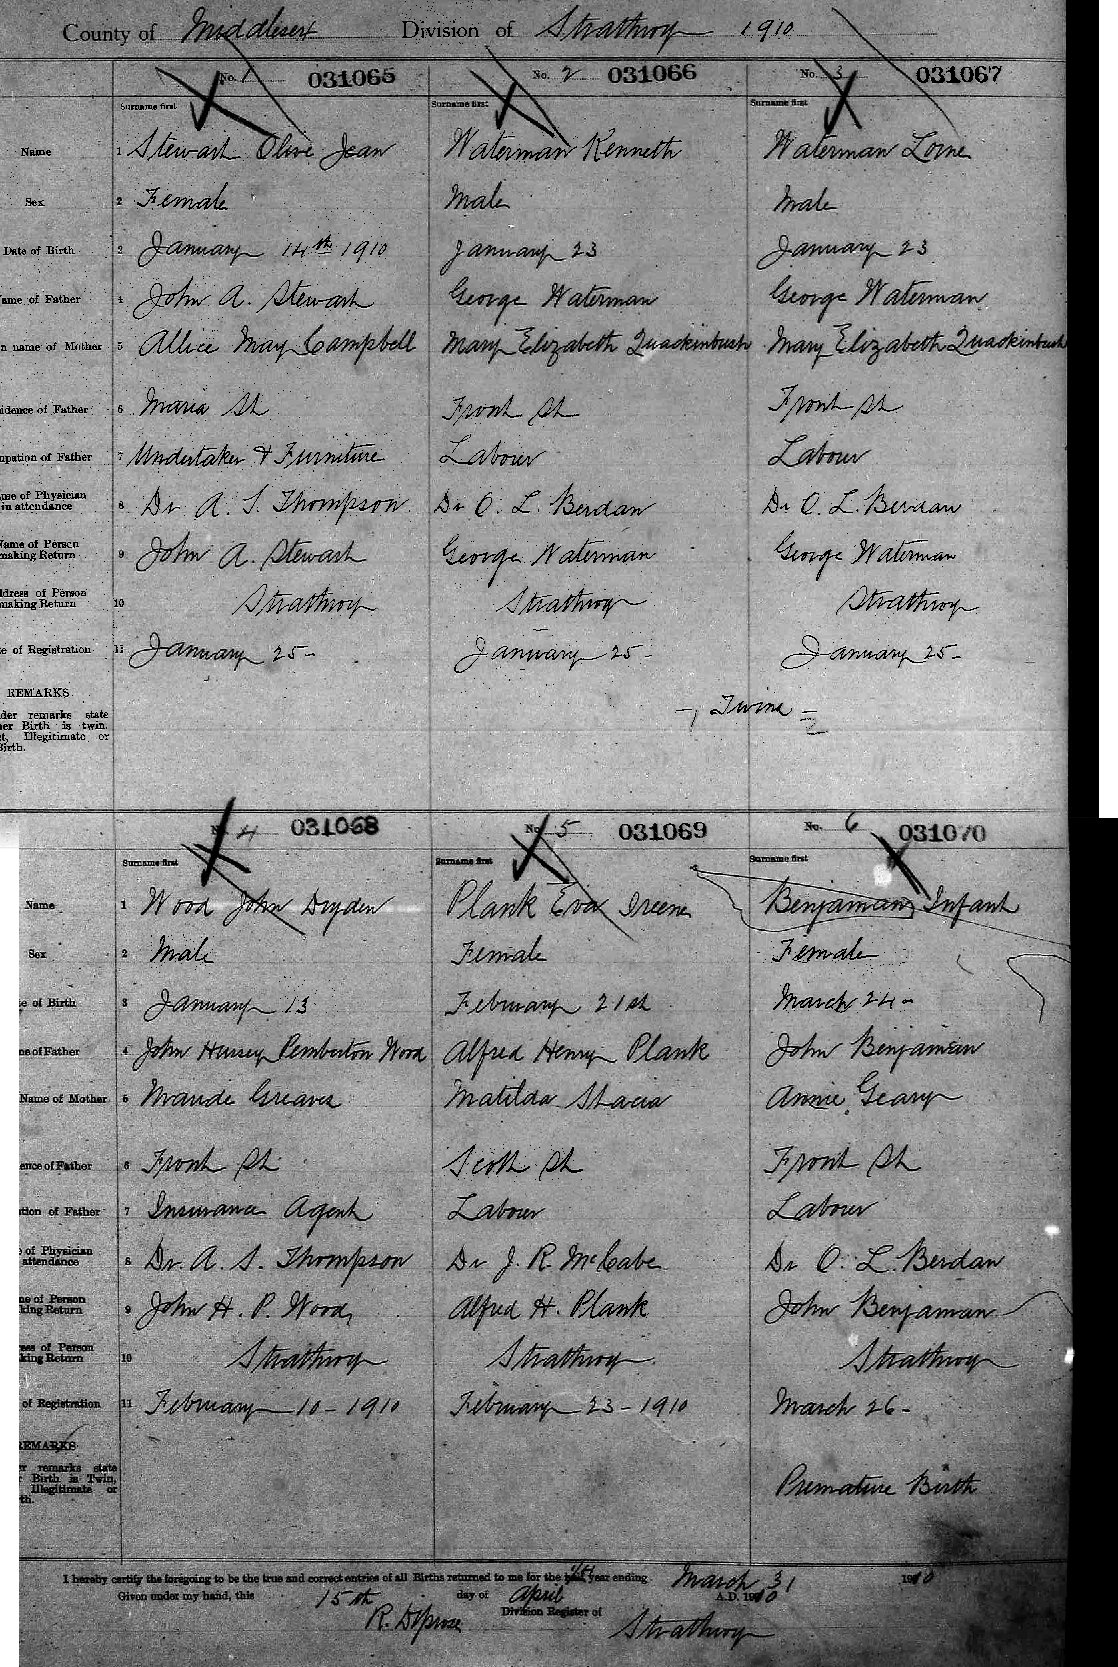 County of Middlesex Division of Strathroy 1910
No. 1 031065 No. 2 031066 No. 3 031067
Surname first Surname first Surname first
Name 1 Stewart Olive Jean Waterman Kenneth Waterman Lorne
Sex 2 Female Male Male
Date of Birth 3 January 14th 1910 January 23 January 23
ame of Father 4 John A. Stewart George Waterman George Waterman
n name of Mother 5 Allice May Campbell Mary Elizabeth Quackinbush Mary Elizabeth Quackinbush
idence of Father 6 Maria St Front St Front St
upation of Father 7 Undertaker & Furniture Labour Labour
me of Physician
in attendance 8 Dr A. S. Thompson Dr O. L. Berdan Dr O. L. Berdan
Name of Person
making Return 9 John A. Stewart George Waterman George Waterman
ddress of Person
making Return 10 Strathroy Strathroy Strathroy
te of Registration 11 January 25- January 25- January 25-
REMARKS
der remarks state
er Birth is twin,
t, Illegitimate or
Birth.
- Twins -
No. 4 031068 No. 5 031069 No. 6 031070
Surname first Surname first Surname first
Name 1 Wood John Dryden Plank Eva Ireene Benjamin Infant
Sex 2 Male Female Female
e of Birth 3 January 13 February 21st March 24-
ne of Father 4 John Hersey Pemberton Wood Alfred Henry Plank John Benjamin
Name of Mother 5 Maude Greaves Matilda Stacia Annie Geary
ence of Father 6 Front St Scott St Front St
tion of Father 7 Insurance Agent Labour Labour
of Physician
attendance 8 Dr. A. S. Thompson Dr J. R. McCabe Dr O. L. Berdan
ne of Person
king Return 9 John H. P. Wood Alfred H. Plank John Benjaman
ess of Person
king Return 10 Strathroy Strathroy Strathroy
of Registration 11 February 10-1910 February 23-1910 March 26-
REMARKS
r remarks state
Birth is Twin,
Illegitimate or
th.
Premature Birth
I hereby certify the foregoing to be the true and correct entries of all Births returned to me for the year ending March 31 1910
Given under my hand, this 15th day of April A.D. 1910
R. Diprose Division Register of Strathroy